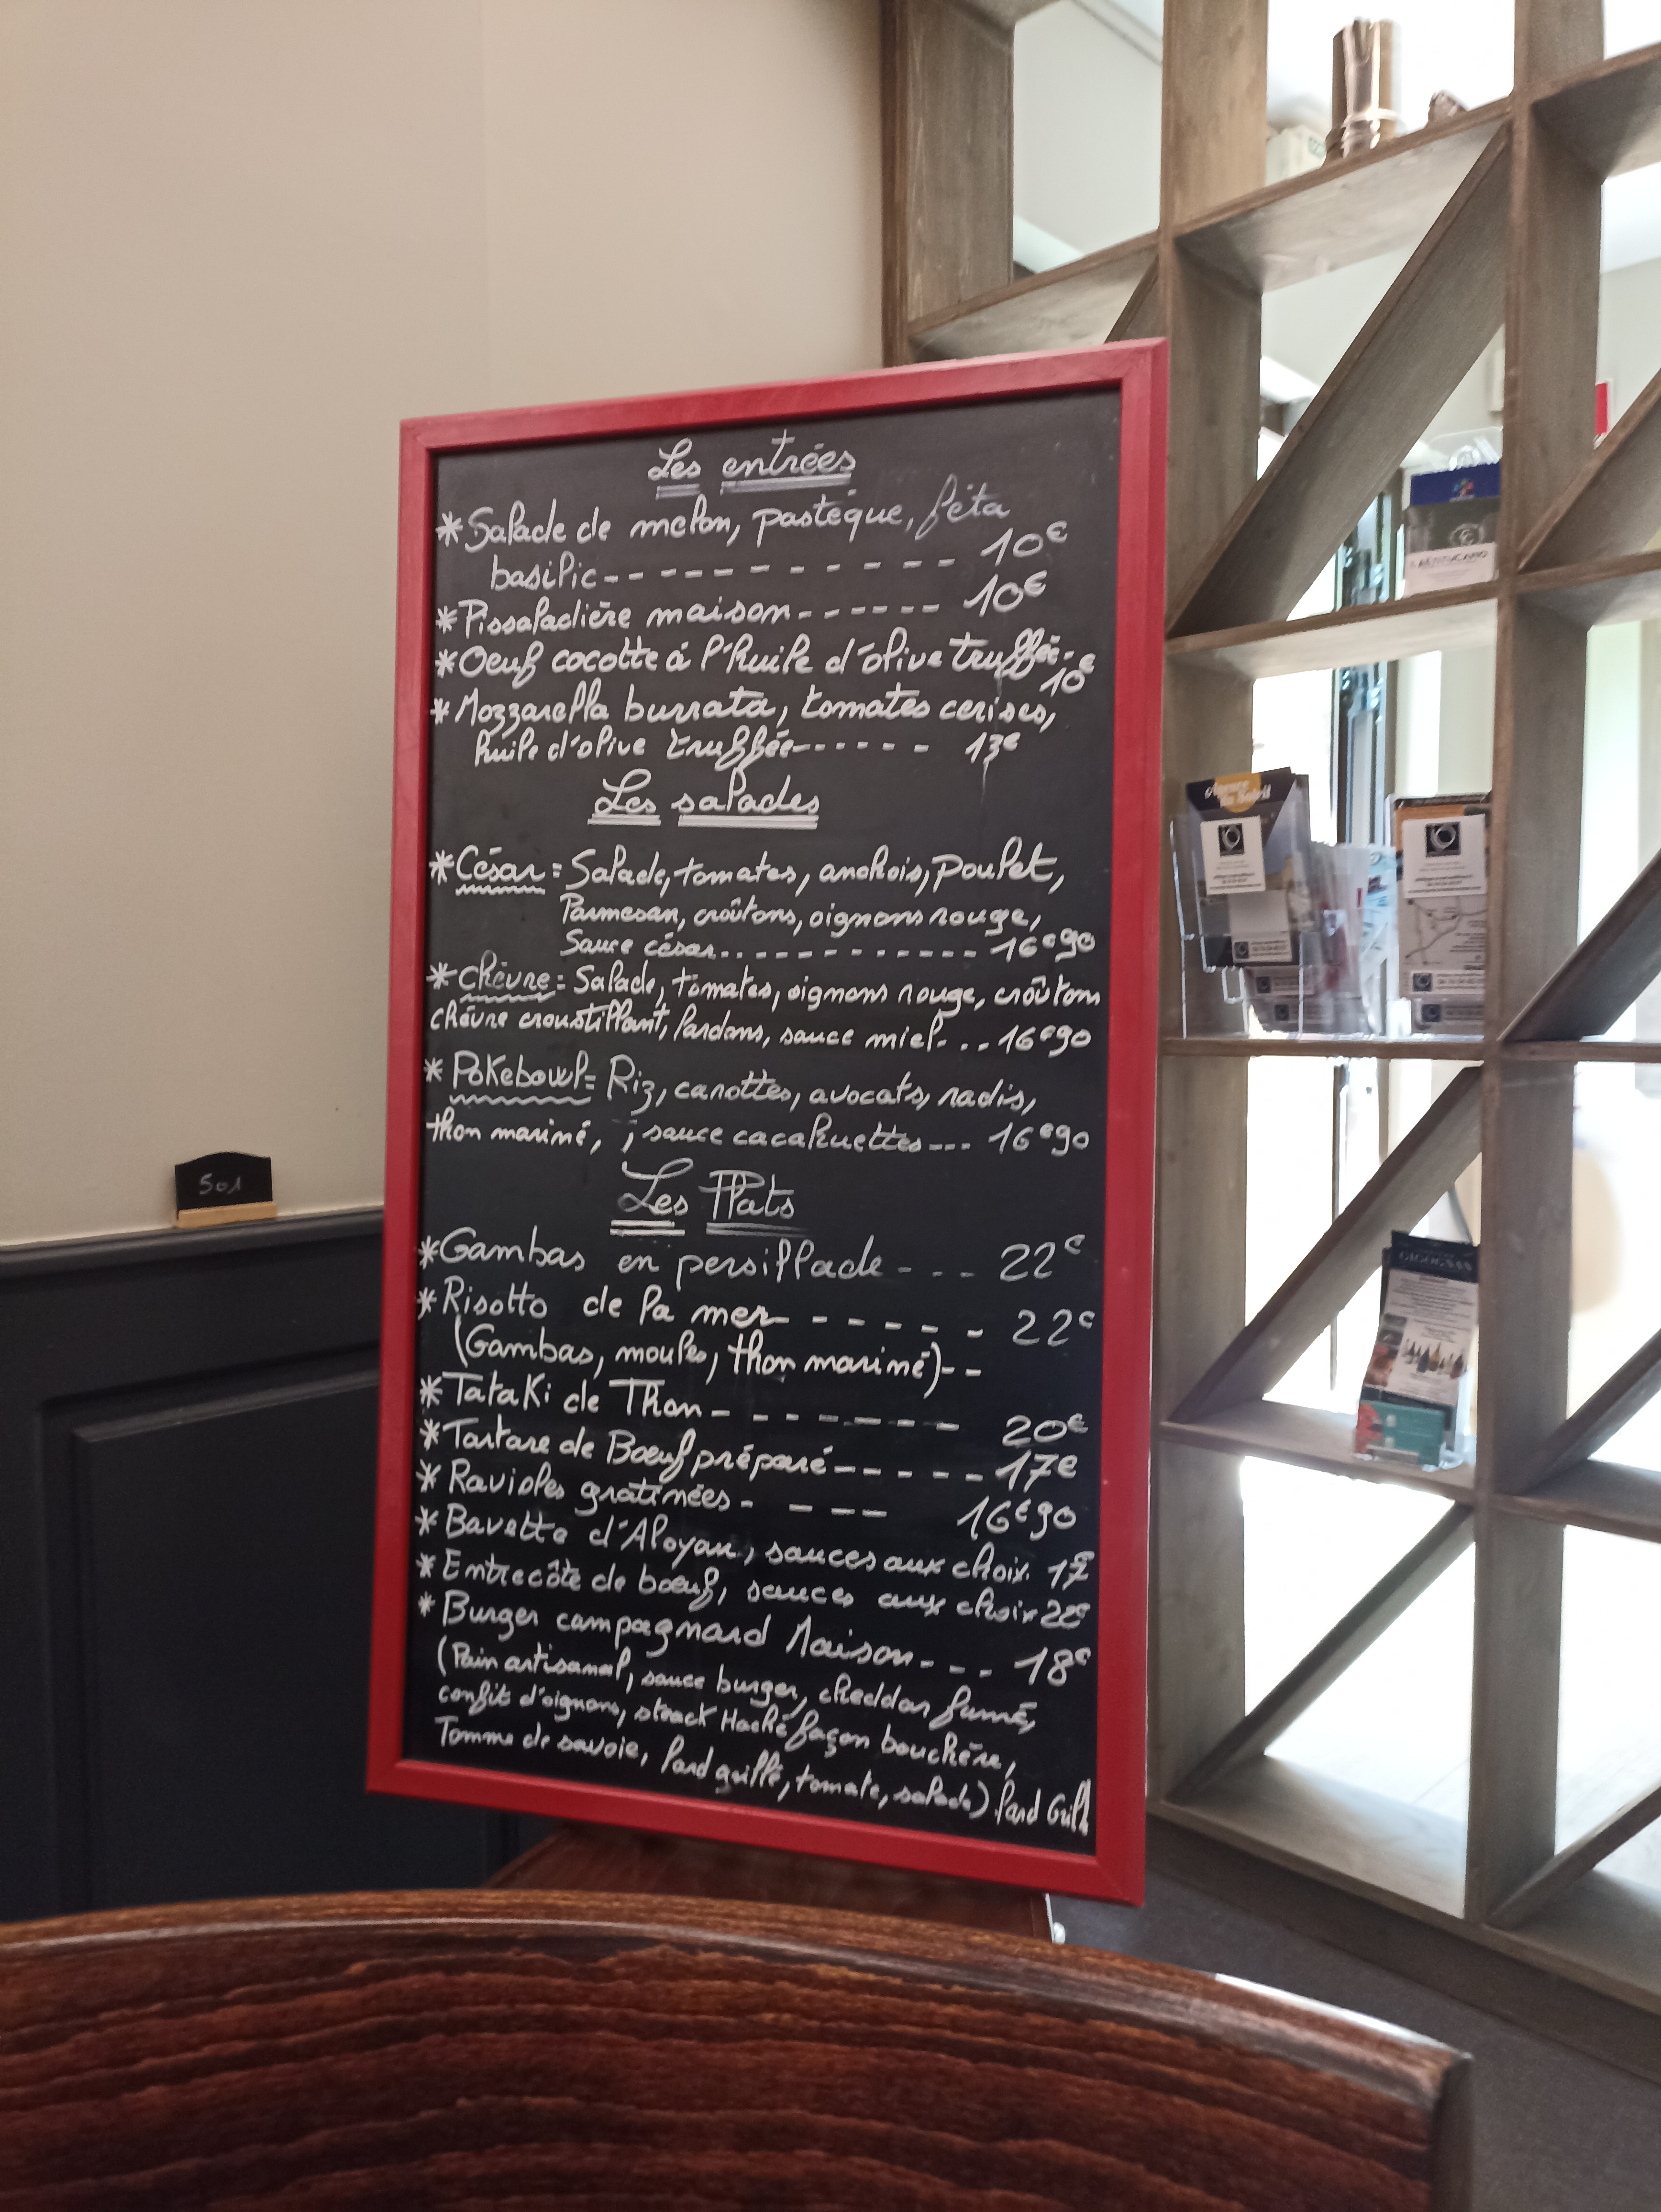 Les entrées
*Salade de melon, pastèque, féta
basilic----------- 10€
*Pissaladière maison------ 10€
*Oeuf cocotte à l'huile d'olive truffée-- 10€
*Mozzarella burrata, tomates cerises,
huile d'olive truffée------ 13€
Les salades
*César = Salade, tomates, anchois, poulet,
Parmesan, croûtons, oignons rouge,
Sauce césar............ 16€90
*chèvre = Salade, tomates, oignons rouge, croûtons
chèvre croustillant, lardons, sauce miel- .. 16€90
* Pokebowl = Riz, carottes, avocats, radis,
thon mariné, ; sauce cacahuettes--- 16€90
Les Plats
*Gambas en persillade - -- 22€
*Risotto de la mer------ 22€
(Gambas, moules, thon mariné)--
*Tataki de Thon-------- 20€
*Tartare de Boeuf préparé----- 17€
* Ravioles gratinées - - -- 16€90
* Bavette d'Aloyau, sauces aux choix. 17€
* Entrecôte de boeuf, sauces aux choix
* Burger campagnard Maison--- 18€
(Pain artisanal, sauce burger, cheddar fumé,
confit d'oignons, steack Haché façon bouchère,
Tomme de savoie, lard grillé, tomate, salade) lard Grillé
501
Agence
du Soleil
GIGOGNAN